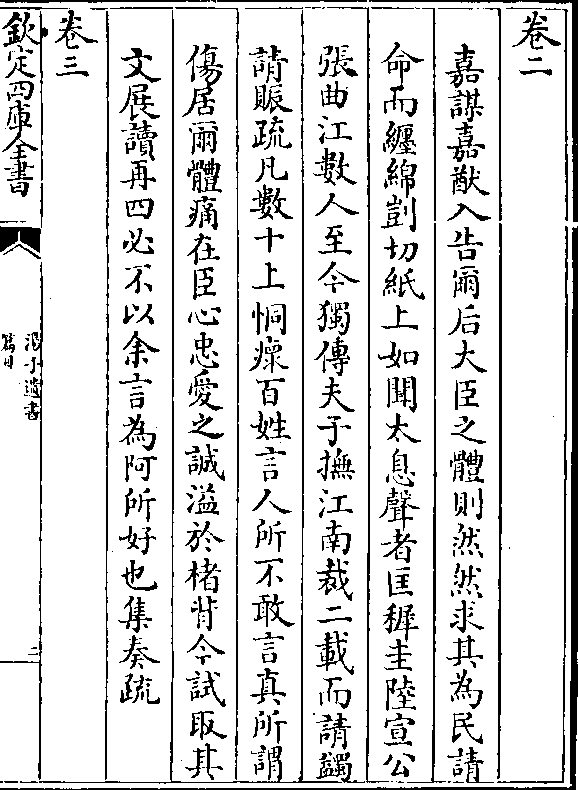 卷二
嘉謀嘉猷入告爾后大臣之體則然然求其為民請
命而纏綿剴切紙上如聞太息聲者匡穉圭陸宣公
張曲江數人至今獨傳夫子撫江南裁二載而請蠲
請賑疏凡數十上恫瘝百姓言人所不敢言真所謂
傷居爾體痛在臣心忠愛之誠溢於楮背今試取其
文展讀再四必不以余言為阿所好也集奏疏
卷三
欽定四庫全書
子遺書
篇目
二